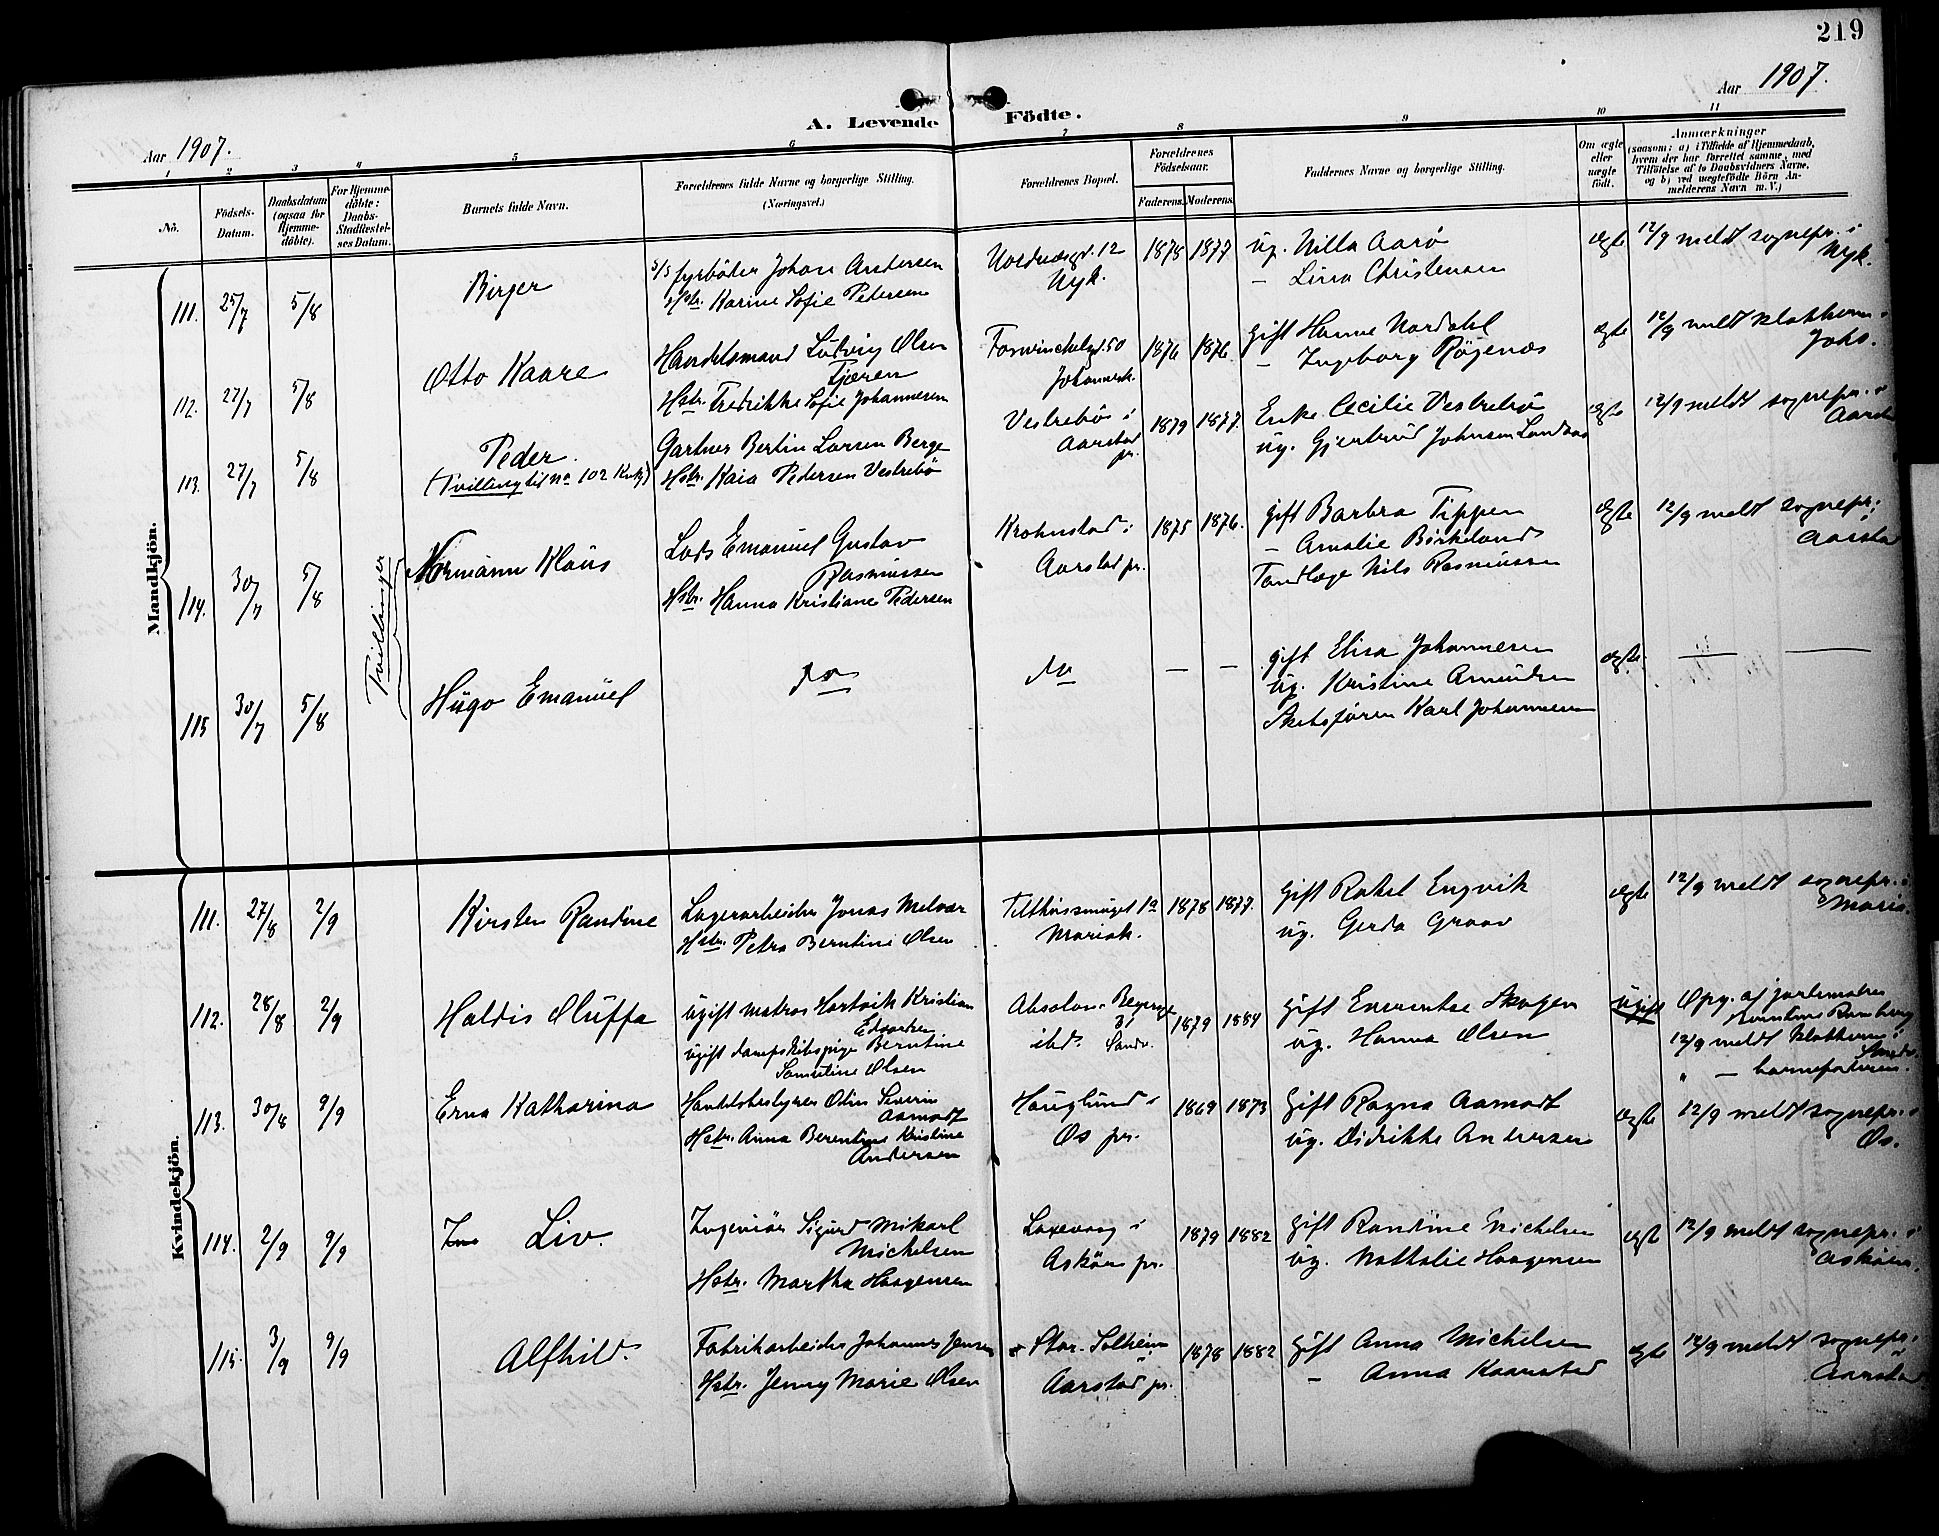 219
Aar 1907.
Aar 1907.
A. Levende Födte.
1 2 3 4 5 6 7 8 9 10 11
No.
Födsels-Datum.
Daabsdatum (ogsaa for Hjemme-döbte).
For Hjemme-döbte: Daabs-Stadfestel-ses Datum.
Barnets fulde Navn.
Forældrenes fulde Navne og borgerlige Stilling.
(Næringsvei.)
Forældrenes Bopæl.
Forældrenes Födselsaar.
Faderens. Moderens.
Faddernes Navne og borgerlige Stilling.
Om ægte eller uægte födt.
Anmærkninger
(saasom: a) i Tilfælde af Hjemmedaab, hvem der har forrettet samme, med Tilföielse af to Daabsvidners Navne. og b) ved uægtefödte Börn An-melderens Navn m. V.)
Mandkjön.
111. 25/7 5/8 Birger
s/s fyrböter Johan Andersen
Hstr. Karine Sofie Petersen
12
Nyk.
1878 1877
ug. Nilla Aarö
— Lina Christensen
ægte
12/9 meldt sognepr. i
Nyk.
112. 27/7 5/8 Otto Kaare
Handelsmand Ludvig Olsen
Tjæren
Hstr. Fredrikke Sofie Johannesen
50
Johannesk.
1876 1876
Gift Hanne Nordahl
— Ingeborg Røgenæs
ægte
12/9 meldt klokkeren i
Johs.
113. 27/7 5/8 Peder.
(Tvilling til no 102 Kvkj)
Gartner Bertin Larsen Berge
Hstr. Kaia Pedersen Vestrebö
Vestrebö i
Aarstad
pr.
1879 1877.
Enke Cecilie Vestrebö
ug. Gjertrud Johnsen Landaas
ægte
12/9 meldt sognepr. i
Aarstad
Tvillinger
114. 30/7 5/8 Normann Klaus
Lods Emanuel Gustav
Rasmussen
Hstr. Hanna Kristiane Pedersen
Krohnstad i
Aarstad pr.
1875 1876.
Gift Barbra Tippen
— Amalie Birkeland
Tandlæge Nils Rasmussen
ægte
12/9 meldt sognepr. i
Aarstad
115 30/7 5/8 Hugo Emanuel
do
do
— —
Gift Elisa Johannesen
ug. Kristine Amundsen
Karl Johannesen
ægte.
— —
Kvindekjön.
111. 27/8 2/9 Kirsten Randine
Lagerarbeider Jonas Melvær
Hstr. Petra Berntine Olsen
Tilthussmuget 1a
Mariak.
1878 1877.
Gift Rakel Engvik
ug. Gerda Graav
ægte
12/9 meldt sognepr. i
Maria.
112. 28/8 2/9 Haldis Oluffa
ugift matros Hartvik Kristian
Edvardsen
ugift dampskibspige Berntine
Samuline Olsen
Absalon Beyersgt
31
ibd. Sandv.
1879 1884
Gift Eneventse Skogen
ug. Hanna Olsen
ugift
Opg. af jordemoder
12/9 meldt klokkeren i
Sandv.
" — barnefaderen.
113. 30/8 9/9 Erna Katharina
Handelsbestyrer Odin Severin
Aamodt
Hstr. Anna Berentine Kristine
Andersen
Hauglund i
Os pr.
1869 1873
Gift Ragna Aamodt
ug. Didrikke Andersen
ægte
12/9 meldt sognepr. i
Os.
114. 2/9 9/9 Liv.
Ingeniör Sigurd Mikael
Michelsen
Hstr. Martha Haagensen
Laxevaag i
Asköens pr.
1879 1882
Gift Randine Michelsen
ug. Nathalie Haagensen
ægte
12/9 meldt sognepr. i
Asköen.
115. 3/9 9/9 Alfhild.
Fabrikarbeider Johannes Jensen
Hstr. Jenny Marie Olsen
Stor-Solheim
Aarstad pr.
1878 1882
Gift Anna Michelsen
— Anna Kaarstad
ægte
12/9 meldt sognepr.
Aarstad